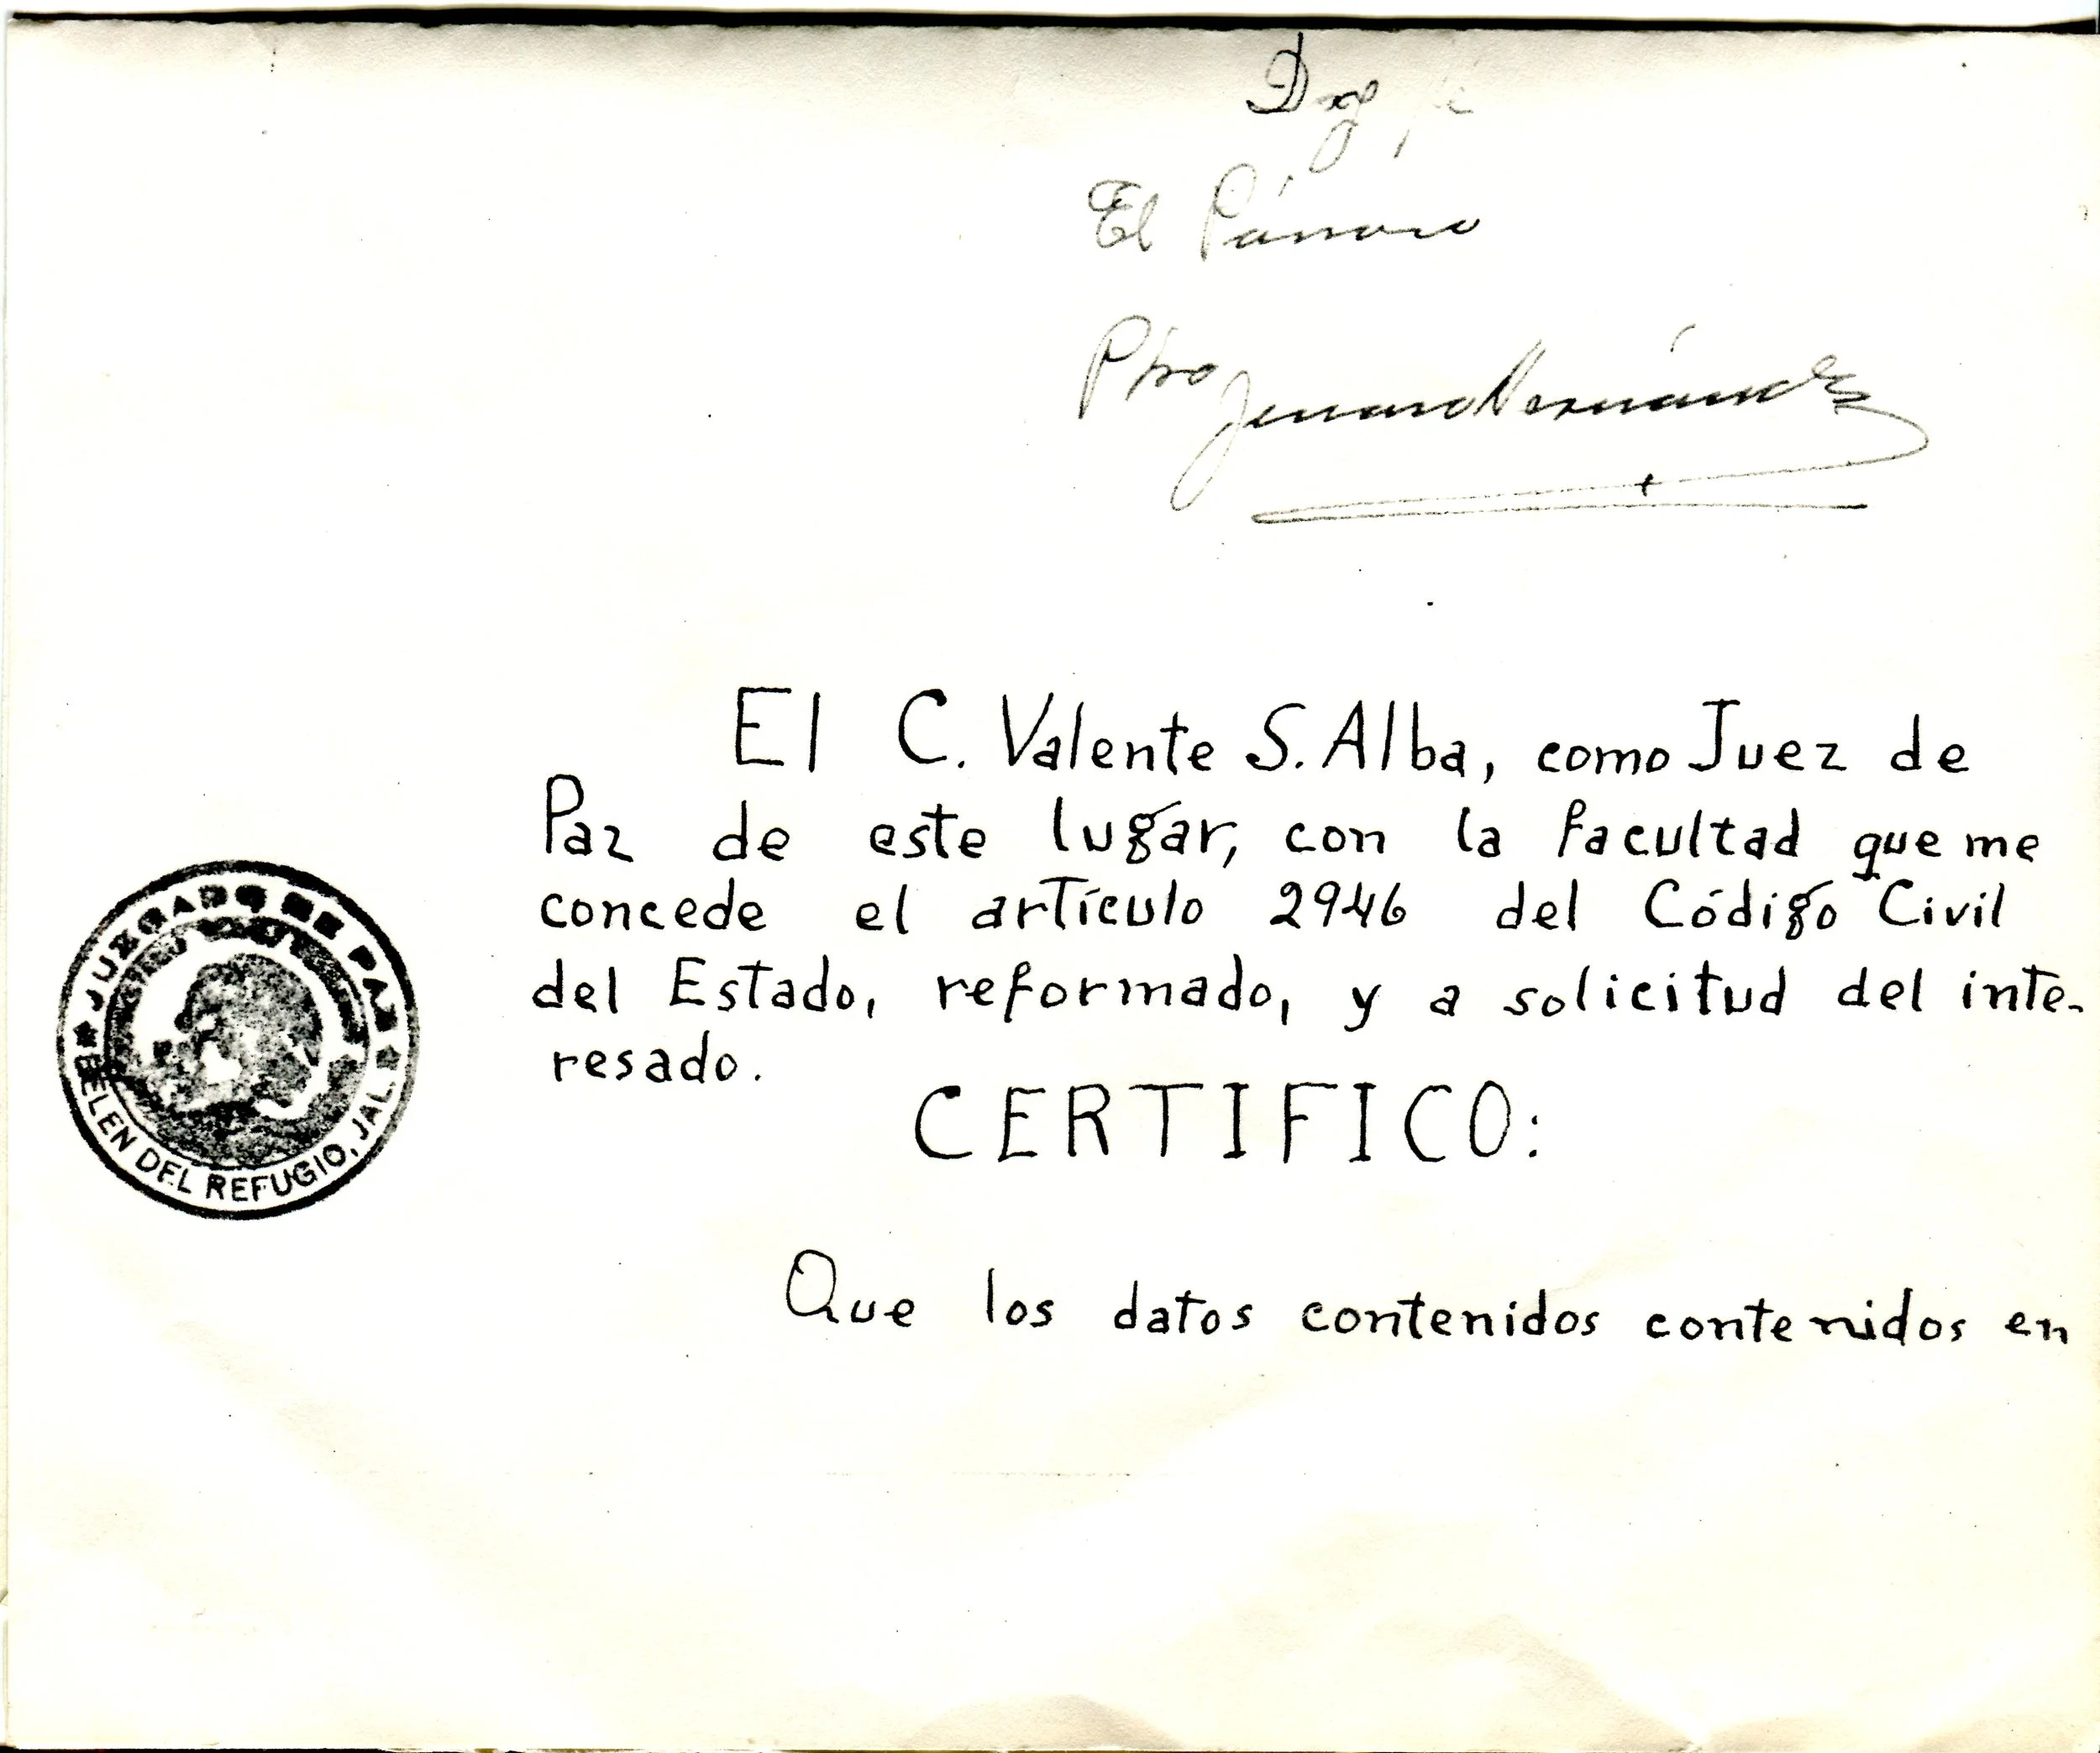 Doy fe
El Párroco
Pbro Jenaro Hernández
El C. Valente S. Alba, como Juez de
Paz de este lugar, con la facultad que me
concede el artículo 2946 del Código Civil
del Estado, reformado, y a solicitud del inte-
resado.
CERTIFICO:
JUZGADO DE PAZ
BELEN DEL REFUGIO, JAL.
Que los datos contenidos contenidos en